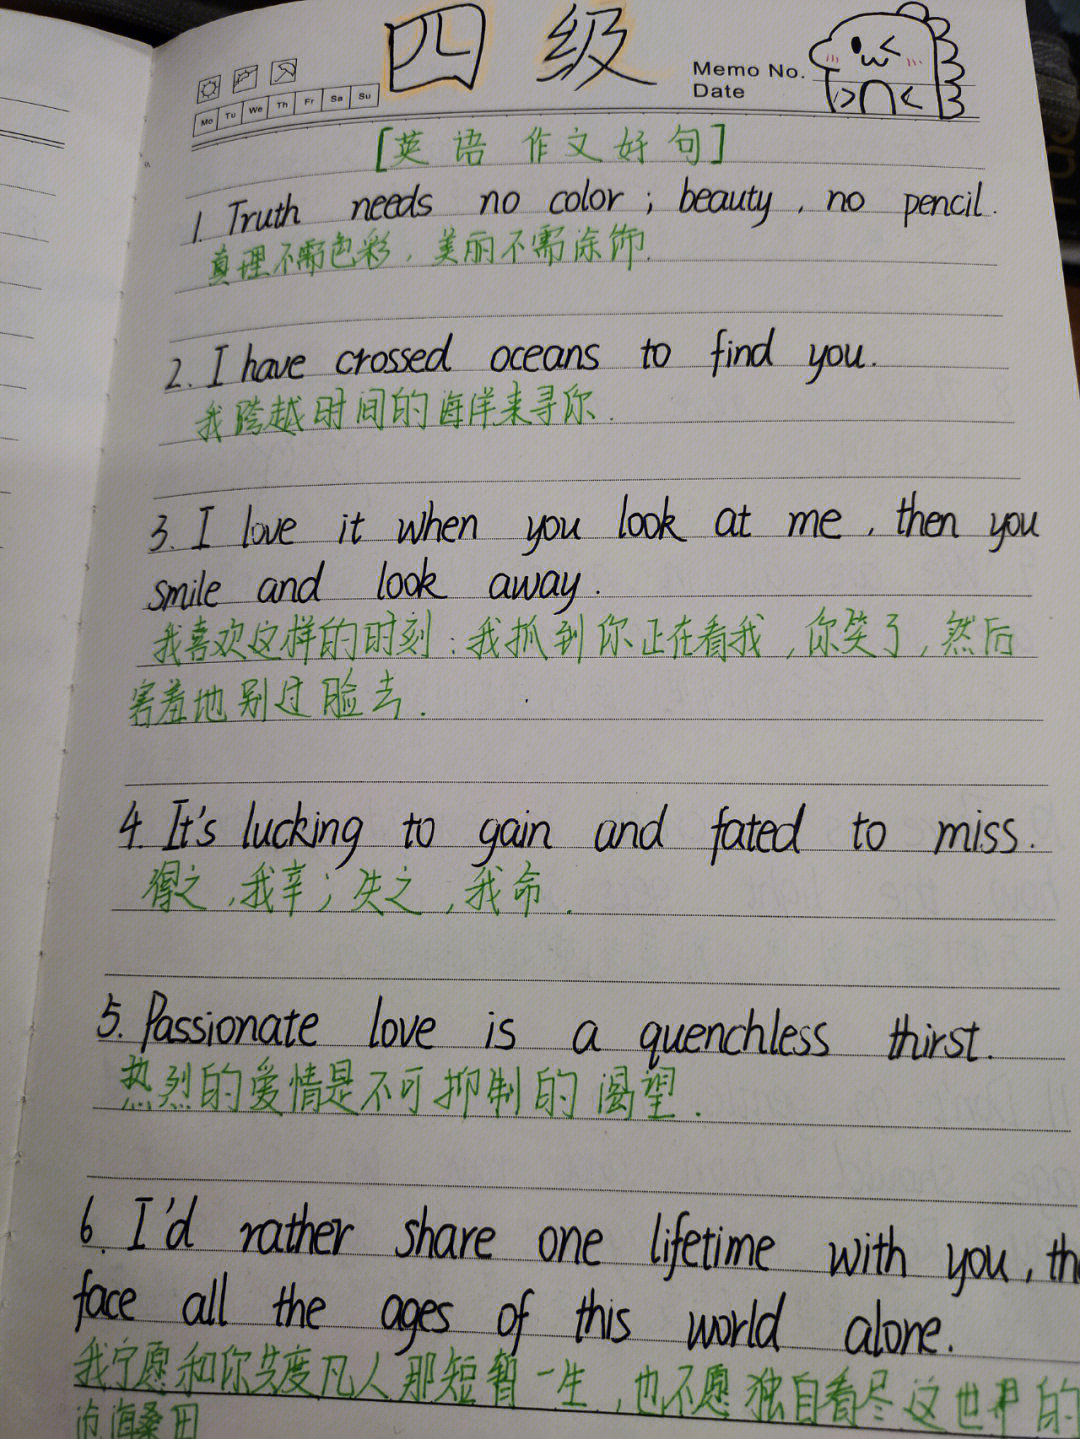 四级
Memo No.
Date
Mo Tu We Th Fr Sa Su
[英语 作文好句]
1. Truth needs no color; beauty, no pencil.
真理不需色彩，美丽不需涂饰.
2. I have crossed oceans to find you.
我跨越时间的海洋来寻你.
3. I love it when you look at me, then you
smile and look away.
我喜欢这样的时刻:我抓到你正在看我,你笑了,然后
害羞地别过脸去.
4. It's lucking to gain and fated to miss.
得之,我幸;失之,我命.
5. Passionate love is a quenchless thirst.
热烈的爱情是不可抑制的渴望.
6. I'd rather share one lifetime with you, th
face all the ages of this world alone.
我宁愿和你共度凡人那短暂一生,也不愿独自看尽这世界的
沧海桑田